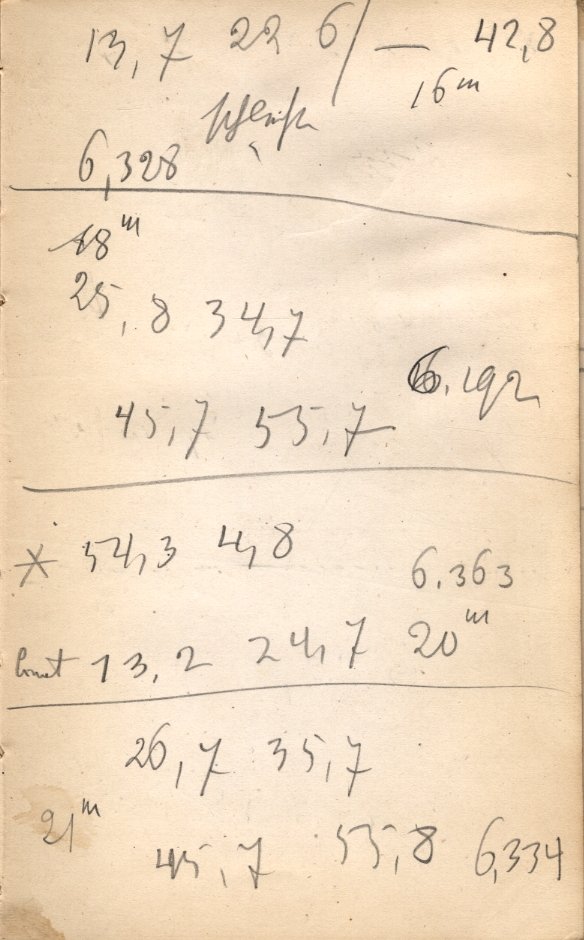 13,7 22 6 / — 42,8
16ᵐ
schlecht
6,328
18ᵐ
25,8 34,7
6.192
45,7 55,7
* 54,3 4,8
6.363
Comet 13,2 24,7 20ᵐ
26,7 35,7
21ᵐ
45,7 55,8 6,334